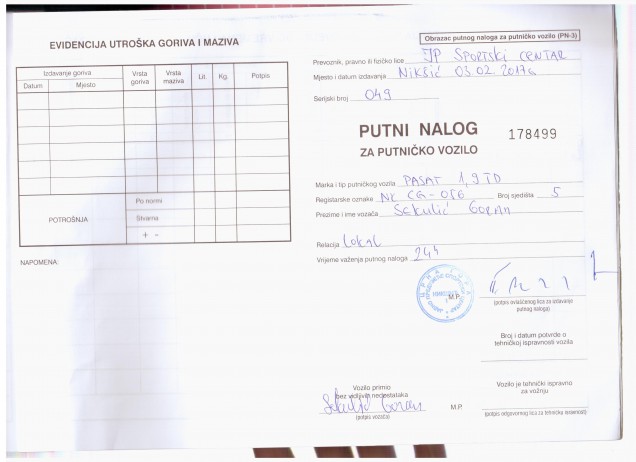 EVIDENCIJA UTROŠKA GORIVA I MAZIVA
Izdavanje goriva
Datum Mjesto Vrsta goriva Vrsta maziva Lit. Kg. Potpis
POTROŠNJA
Po normi
Stvarna
+ -
NAPOMENA:
Obrazac putnog naloga za putničko vozilo (PN-3)
Prevoznik, pravno ili fizičko lice JP SPORTSKI CENTAR
Mjesto i datum izdavanja Nikšić 03.02.2017g
Serijski broj 049
PUTNI NALOG 178499
ZA PUTNIČKO VOZILO
Marka i tip putničkog vozila PASAT 1,9 TD
Registarske oznake NK CG-076 Broj sjedišta 5
Prezime i ime vozača Sekulić Goran
Relacija Lokal
Vrijeme važenja putnog naloga 24h
M.P.
(potpis ovlašćenog lica za izdavanje
putnog naloga)
Broj i datum potvrde o
tehničkoj ispravnosti vozila
Vozilo primio
bez vidljivih nedostataka
Sekulić Goran
(potpis vozača)
M.P.
Vozilo je tehnički ispravno
za vožnju
(potpis odgovornog lica za tehničku ispravnost)